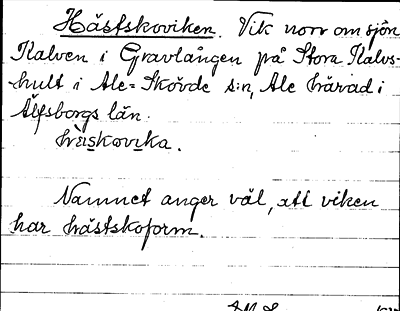 Hästskoviken. Vik norr om sjön
Kalven i Gravlången på Stora Kalvs-
hult i Ale-Skövde s:n, Ale härad i
Älfsborgs län.
Namnet anger väl, att viken
har hästskoform.